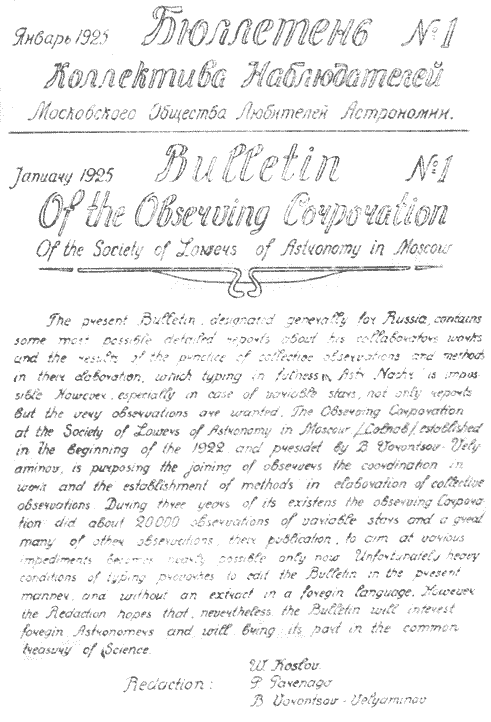 Январь 1925 Бюллетень № 1
Коллектива Наблюдателей
Московского Общества Любителей Астрономии.
January 1925 Bulletin № 1
Of the Observing Corporation
Of the Society of Lowers of Astronomy in Moscow
The present Bulletin, designated generally for Russia, contains
some most possible detailed reports about his collaborators works
and the results of the practice of collective observations and methods
in their elaboration, which typing in fulness Astr. Nachr. is impos-
sible However, especially in case of variable stars, not only reports
but the very observations are wanted. The Observing Corporation
at the Society of Lowers of Astronomy in Moscow established
in the beginning of the 1922 and presidet by B Vorontsow-Vely
aminov, is purposing the joining of observers the coordination in
work and the establishment of methods in elaboration of collective
observations. During three years of its existens the observing Corpora-
tion did about 20000 observations of variable stars and a great
many of other observations, their publication, to aim at various
impediments becomes nearly possible only now Unfortunately heavy
conditions of typing to edit the Bulletin in the present
manner, and without an extract in a foregin language. However
the Redaction hopes that, nevertheless, the Bulletin will interest
foregin Astronomers and will bring its part in the common
treasury of Science.
W Kostov.
Redaction: P Parenago
B Vorontsow-Velyaminov